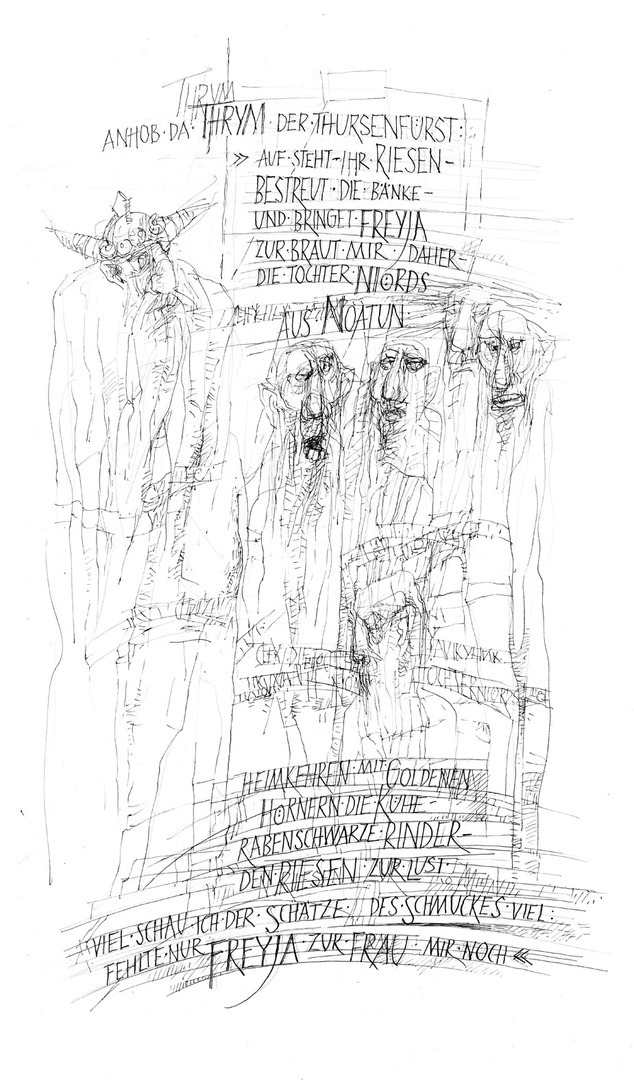 THRYM
ANHOB·DA·THRYM·DER·THURSENFÜRST:
» AUF·STEHT·IHR·RIESEN–
BESTREUT·DIE·BÄNKE–
UND·BRINGET·FREYJA
ZUR·BRAUT·MIR·DAHER–
DIE·TOCHTER·NIORDS
AUS·NOATUN·
HEIMKEHREN·MIT·GOLDENEN
HÖRNERN·DIE·KÜHE–
RABENSCHWARZE·RINDER–
DEN·RIESEN·ZUR·LUST·
VIEL·SCHAU·ICH·DER·SCHÄTZE· DES·SCHMUCKES·VIEL:
FEHLTE·NUR·FREYJA·ZUR·FRAU·MIR·NOCH «